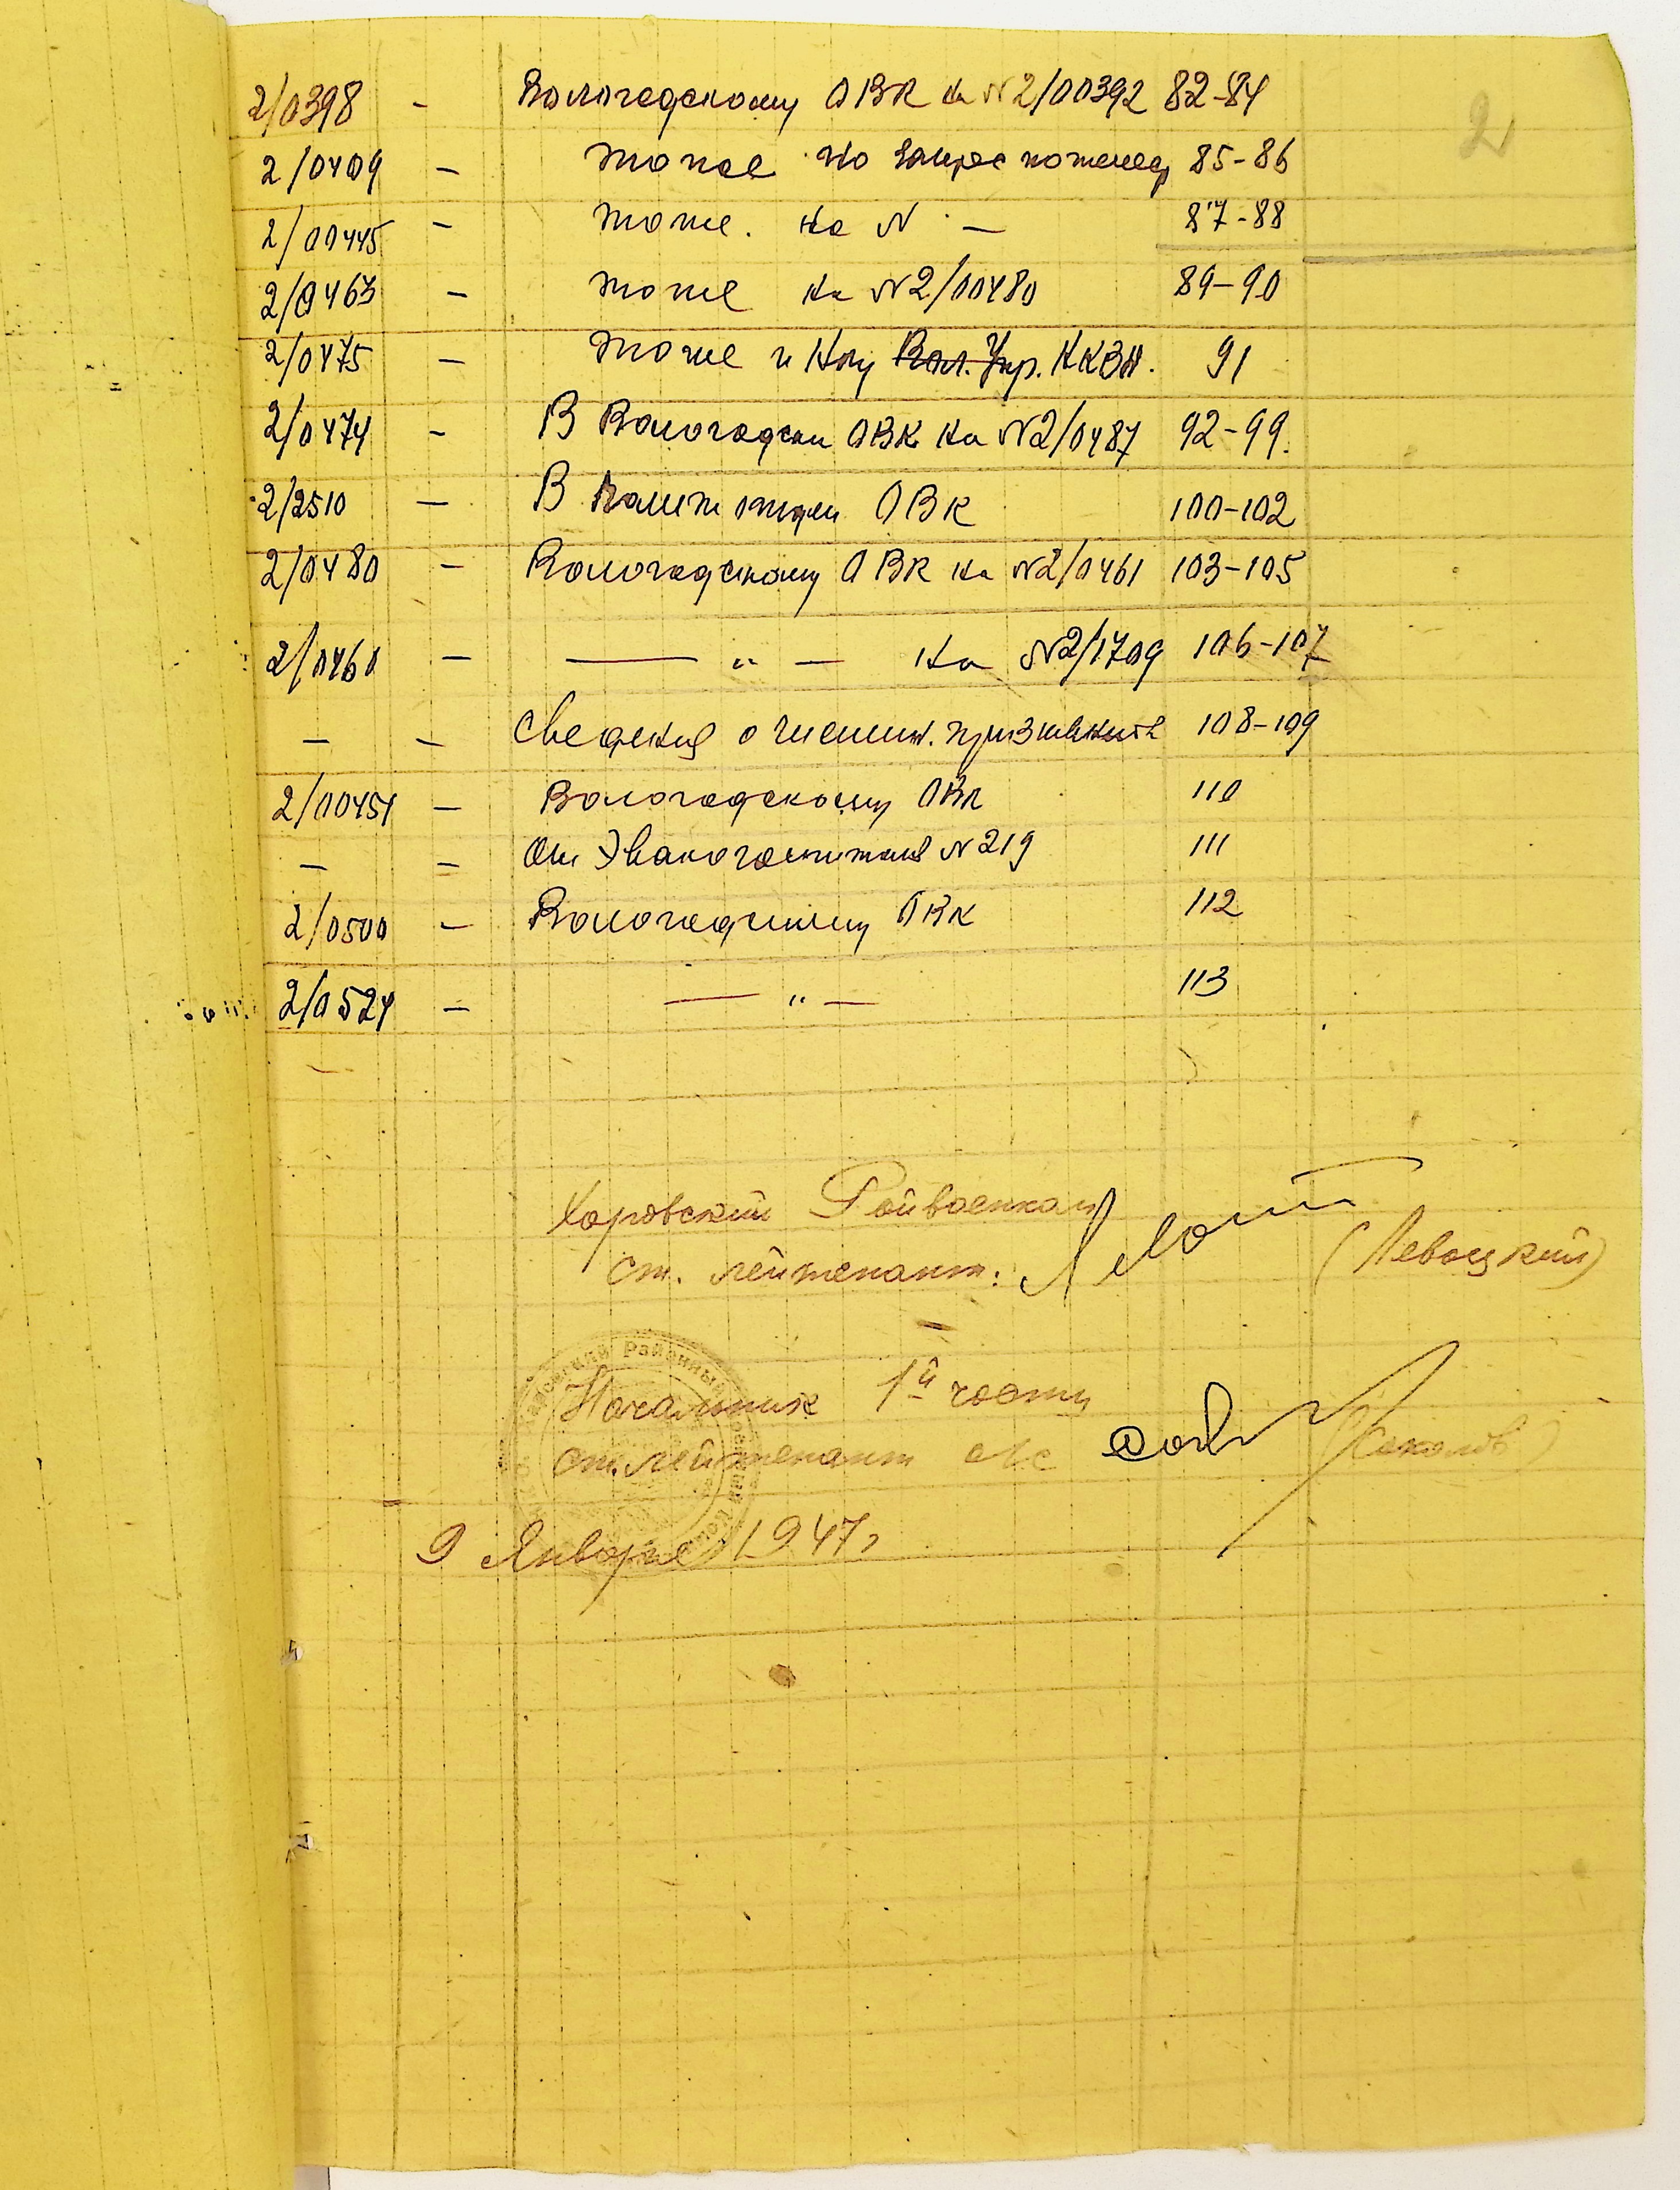 2
2/0398 - Вологодскому ОВК на №2/00392 82-84
2/0409 - тоже по 85-86
2/00445 - тоже. на № - 87-88
2/0463 - тоже на №2/00480 89-90
2/0475 - тоже и Нку Вол. Упр. 91
2/0474 - В Вологодски ОВК на №2/0487 92-99.
2/2510 - В ОВК 100-102
2/0480 - Вологодскому ОВК на №2/0461 103-105
2/0460 - — " — на №2/1709 106-107
— - Сведения о 108-109
2/00451 - Вологодскому ОВК 110
— - От Эвакогоспиталя №219 111
2/0500 - Вологодскому ОВК 112
2/0524 - — " — 113
Харовский Райвоенком
ст. лейтенант: (Левоцкий)
Начальник 1й части
ст. лейтенант а/с (Соколов)
9 Января 1947г